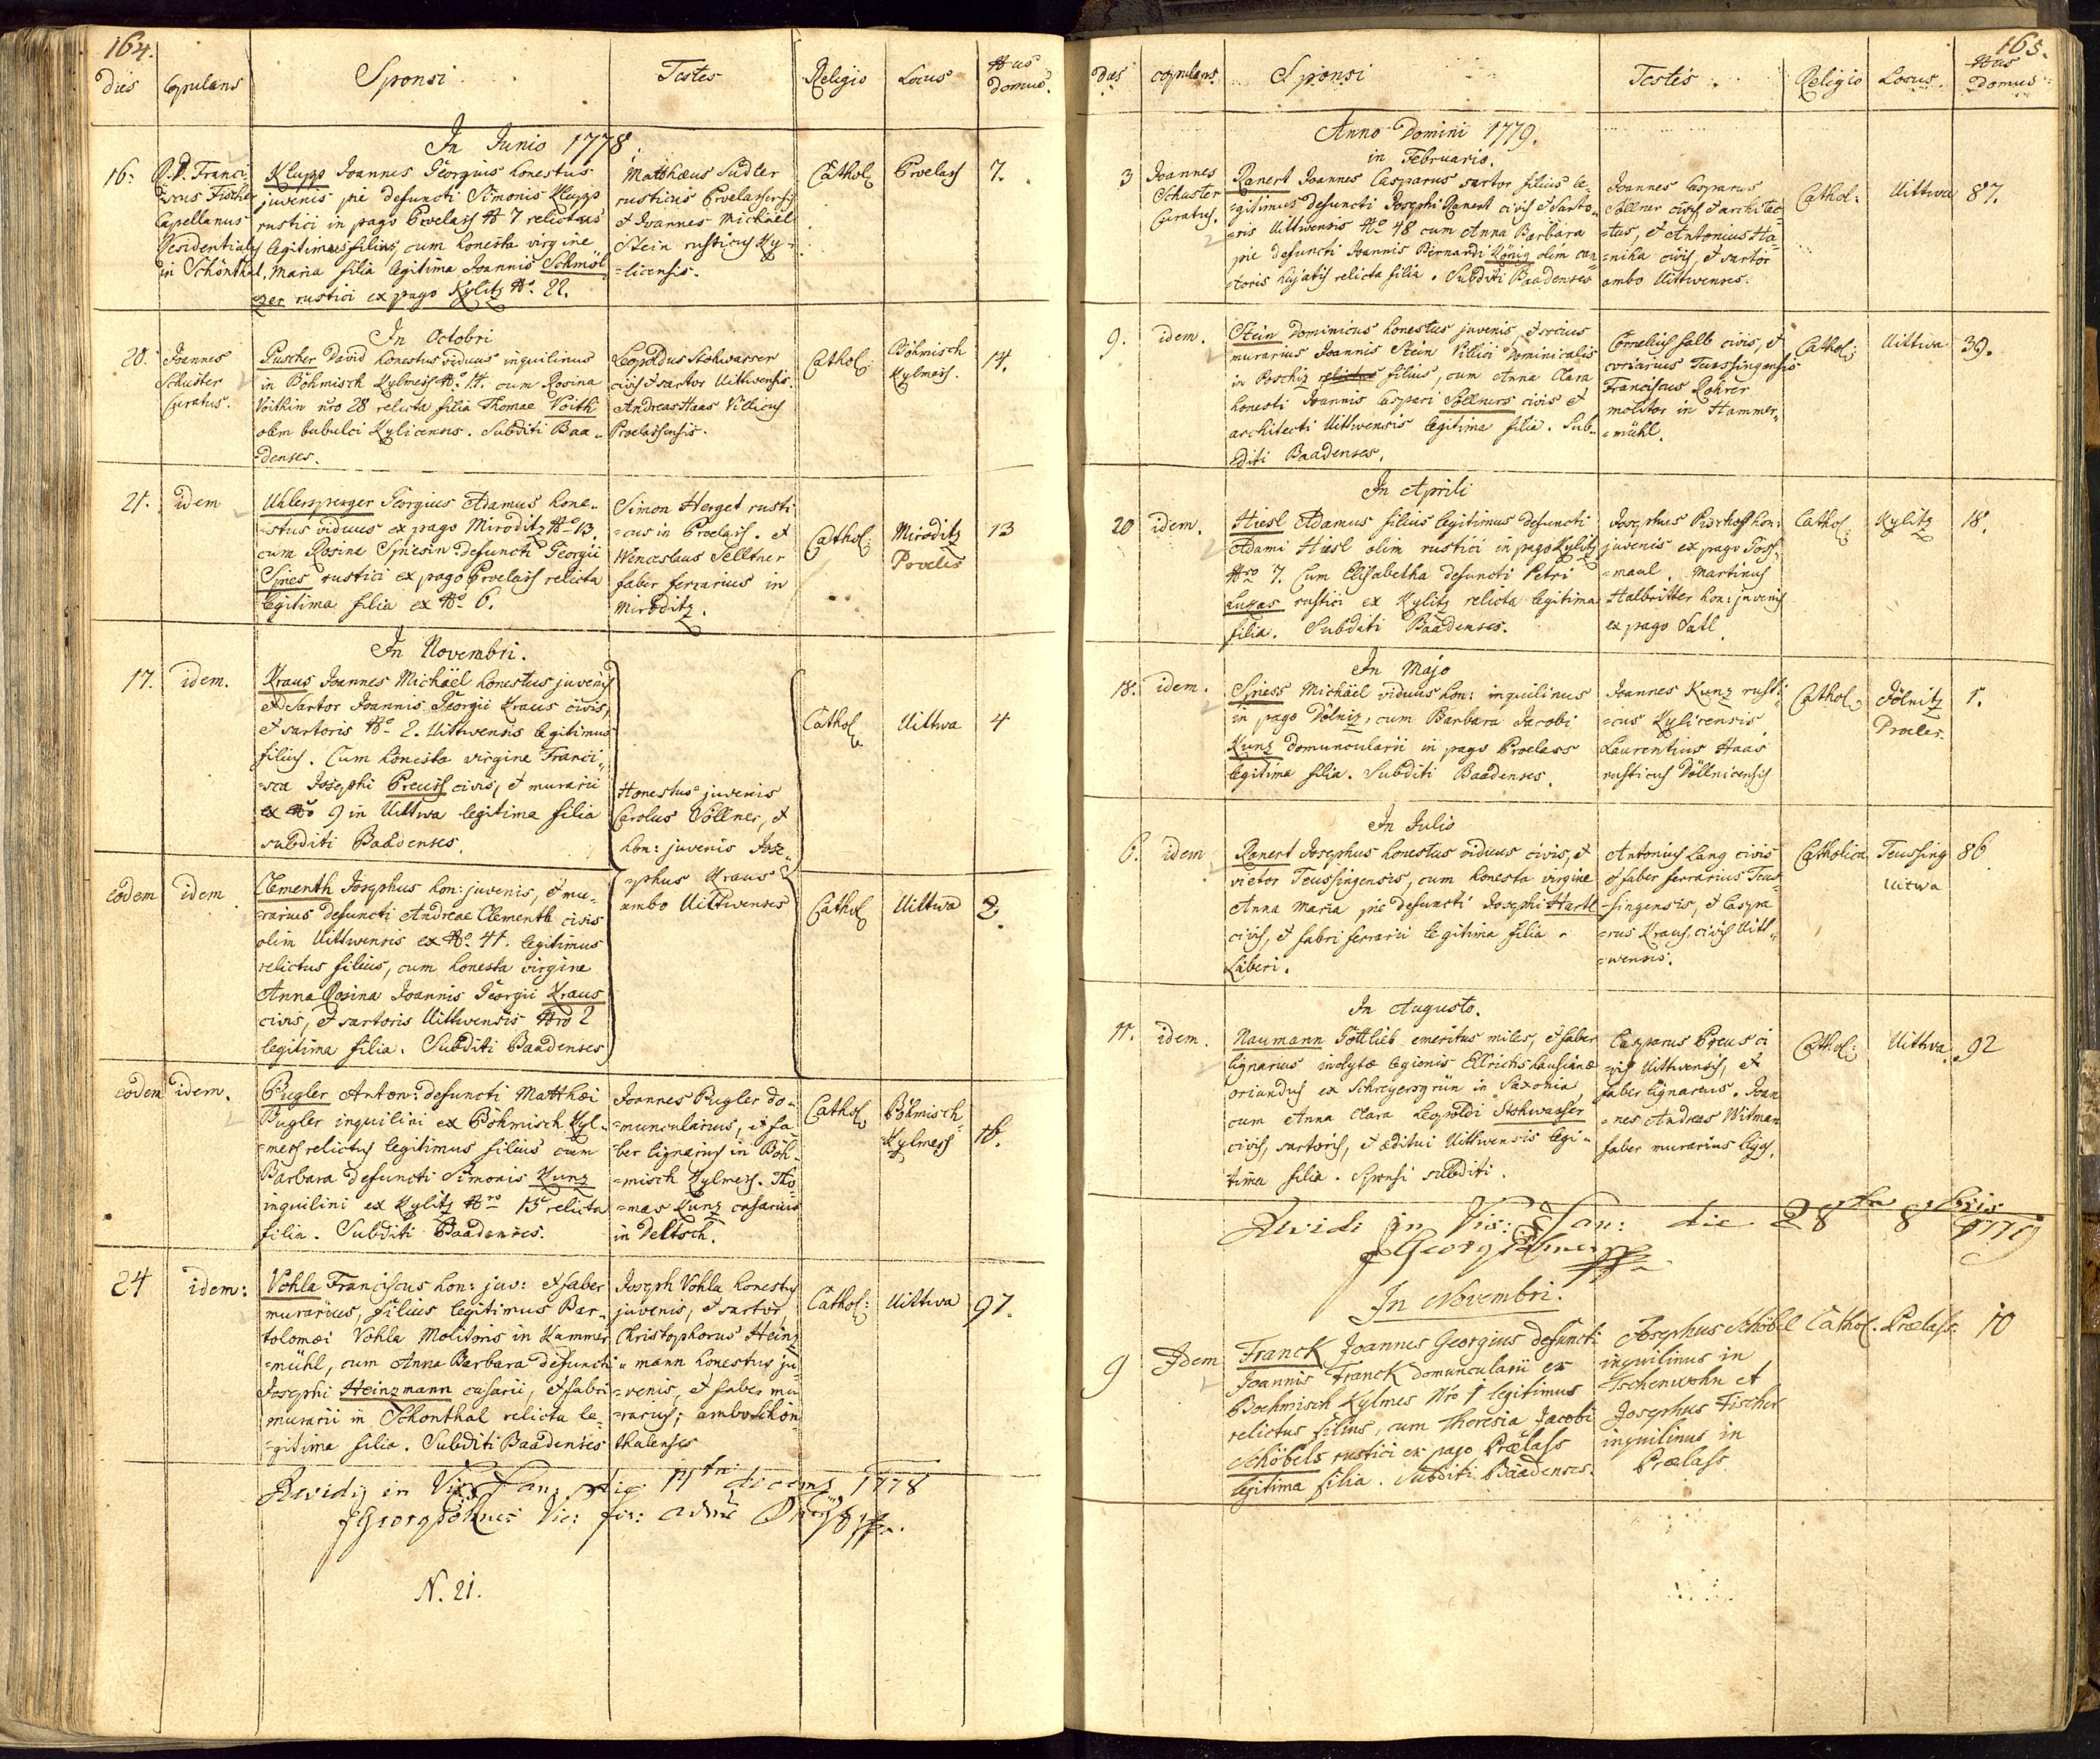 164.
dies Copulans Sponsi Testes Religio Locus Nus Domus.
In Junio 1778
16. P.P. Franci-
scus Fischer
Capellanus
Residentialis
in Schönthal.
Klupp Joannes Georgius honestus
juvenis pie defuncti Simonis Klupp
rustici in pago Proelass N 7 relictus
legitimus filius, cum honesta virgine
Maria filia legitima Joannis Schmöl-
zer rustici ex pago Kylitz No. 22.
Matthaeus Sudler
rusticus Proelassensis
et Joannes Michäel
Stein rusticus Ky-
=licensis.
Cathol Proelass 7.
In Octobri
20. Joannes
Schuster
Curatus.
Puscher David honestus viduus inquilinus
in Böhmisch Kylmes No. 14. cum Rosina
Voithin nro 28 relicta filia Thomae Voith
olim bubulci Kylicensis. Subditi Baa-
=denses.
Leopoldus Stohwasser
civis et sartor Uittwensis.
Andreas Haas Villicus
Proelassensis.
Cathol: Böhmisch
Kylmes. 14.
21. idem
Uhlersperger Georgius Adamus hone-
=stus viduus ex pago Miroditz No 13.
cum Rosina Spiesin defuncti Georgii
Spies rustici ex pago Proelass relicta
legitima filia ex No. 6.
Simon Herget rusti
=cus in Proelass. et
Wenceslaus Selltner
faber ferrarius in
Miroditz.
Cathol: Miroditz 13
Proelis
In Novembri.
17. idem.
Kraus Joannes Michäel honestus juvenis
et Sartor Joannis Georgii Kraus civis,
et sartoris No. 2. Uittwensis legitimus
filius. Cum honesta virgine Franci-
=sca Josephi Preuss civis, et murarii
ex No 9 in Uittwa legitima filia
subditi Baadenses.
Honestus juvenis
Carolus Söllner, et
hon: juvenis Jose-
=phus Kraus
ambo Uittwenses
Cathol Uittwa 4
eodem idem
Clementh Josephus hon: juvenis, et mu-
=rarius defuncti Andreae Clementh civis
olim Uittwensis ex No. 41. legitimus
relictus filius, cum honesta virgine
Anna Rosina Joannis Georgii Kraus
civis, et sartoris Uittwensis Nro 2
legitima filia. Subditi Baadenses
Cathol Uittwa 2.
eodem idem.
Pugler Anton: defuncti Matthaei
Pugler inquilini ex Böhmisch Kyl-
=mes relictus legitimus filius cum
Barbara defuncti Simonis Kunz
inquilini ex Kylitz Nro 15 relicta
filia. Subditi Baadenses.
Joannes Pugler do-
=muncularius, et fa-
=ber lignarius in Böh-
=misch Kylmes. Tho-
=mas Kunz casarius
in Deltsch.
Cathol Böhmisch
Kylmess 16.
24 idem:
Vohla Franciscus hon: juv: et faber
murarius, filius legitimus Bar-
tolomaei Vohla Molitoris in Hammer
=mühl, cum Anna Barbara defuncti
Josephi Heinzmann casarii, et fabri
murarii in Schönthal relicta le-
=gitima filia. Subditi Baadenses
Joseph Vohla honestus
juvenis, et sartor,
Christophorus Heinz
=mann honestus ju-
=venis, et faber mu
=rarius; ambo Schön
thalenses
Cathol: Uittwa 97.
1778
N. 21.
165.
dies copulans. Sponsi Testes. Religio Locus. Nus Domus
Anno Domini 1779.
in Februario.
3 Joannes
Schuster
Curatus.
Ranert Joannes Casparus sartor filius le-
=gitimus defuncti Josephi Ranert civis et sarto-
=ris Uittwensis No 48 cum Anna Barbara
pie defuncti Joannis Bernardi König olim can-
=toris hujatis relicta filia. Subditi Baadenses
Joannes Casparus
Söllner civis et architec
=tus, et Antonius Ha-
=nika civis, et sartor
ambo Uittwenses.
Cathol: Uittwa 87.
9. idem.
Stein Dominicus honestus juvenis, et socius
murarius Joannis Stein Villici Dominicalis
in Poschiz relictus filius, cum Anna Clara
honesti Joannis Caspari Söllners civis et
architecti Uittwensis legitima filia. Sub-
=diti Baadenses.
Cornelius Salb civis, et
coriarius Teussingensis
Franciscus Rohrer
molitor in Hammer-
=mühl.
Cathol: Uittwa 39.
In Aprili
20 idem.
Hiesl Adamus filius legitimus defuncti
Adami Hiesl olim rustici in pago Kylitz
Nro 7. Cum Elisabetha defuncti Petri
Lukas rustici ex Kylitz relicta legitima
filia. Subditi Baadenses.
Josephus Pirchoff hon:
juvenis ex pago Toss-
=maul. Martinus
Halbritter hon: juvenis
ex pago Satl.
Cathol: Kylitz 18.
In Majo
18. idem.
Spiess Michäel viduus hon: inquilinus
in pago Dölniz, cum Barbara Jacobi
Kunz domuncularii in pago Proelass
legitima filia. Subditi Baadenses.
Joannes Kunz rusti-
=cus Kylicensis
Laurentius Haas
rusticus Döllnicensis
Cathol Dölnitz 1.
Proeles.
In Julio
6. idem
Ranert Josephus honestus viduus civis, et
vietor Teussingensis, cum honesta virgine
Anna Maria pie defuncti Josephi Hartl
civis, et fabri ferrarii legitima filia.
Liberi.
Antonius Lang civis
et faber ferrarius Teus-
=singensis, et Caspa
=rus Kraus, civis Uitt-
=wensis.
Catholica Teussing 86
Uitwa
In Augusto.
11. idem.
Naumann Gottlieb emeritus miles, et faber
lignarius inclytae legionis Ellrichshausianae
oriundus ex Schreyersgrün in Saxonia
cum Anna Clara Leopoldi Stohwasser
civis, sartoris, et aeditui Uittwensis legi-
tima filia. Sponsi subditi.
Casparus Preus ci
=vis Uittwensis, et
faber lignarius. Joan
=nes Andreas Witman
faber murarius
Cathol: Uittwa. 92
die 28 8bris
1779
In Novembri.
9 Idem
Franck Joannes Georgius defuncti
Joannis Franck domuncularii ex
Boehmisch Kylmes Nro 1 legitimus
relictus filius, cum Theresia Jacobi
Schöbels rustici ex pago Prælass
legitima filia. Subditi Baadenses.
Josephus Schöbl
inquilinus in
Tschenwohn et
Josephus Fischer
inquilinus in
Prælass
Cathol. Prælass: 10